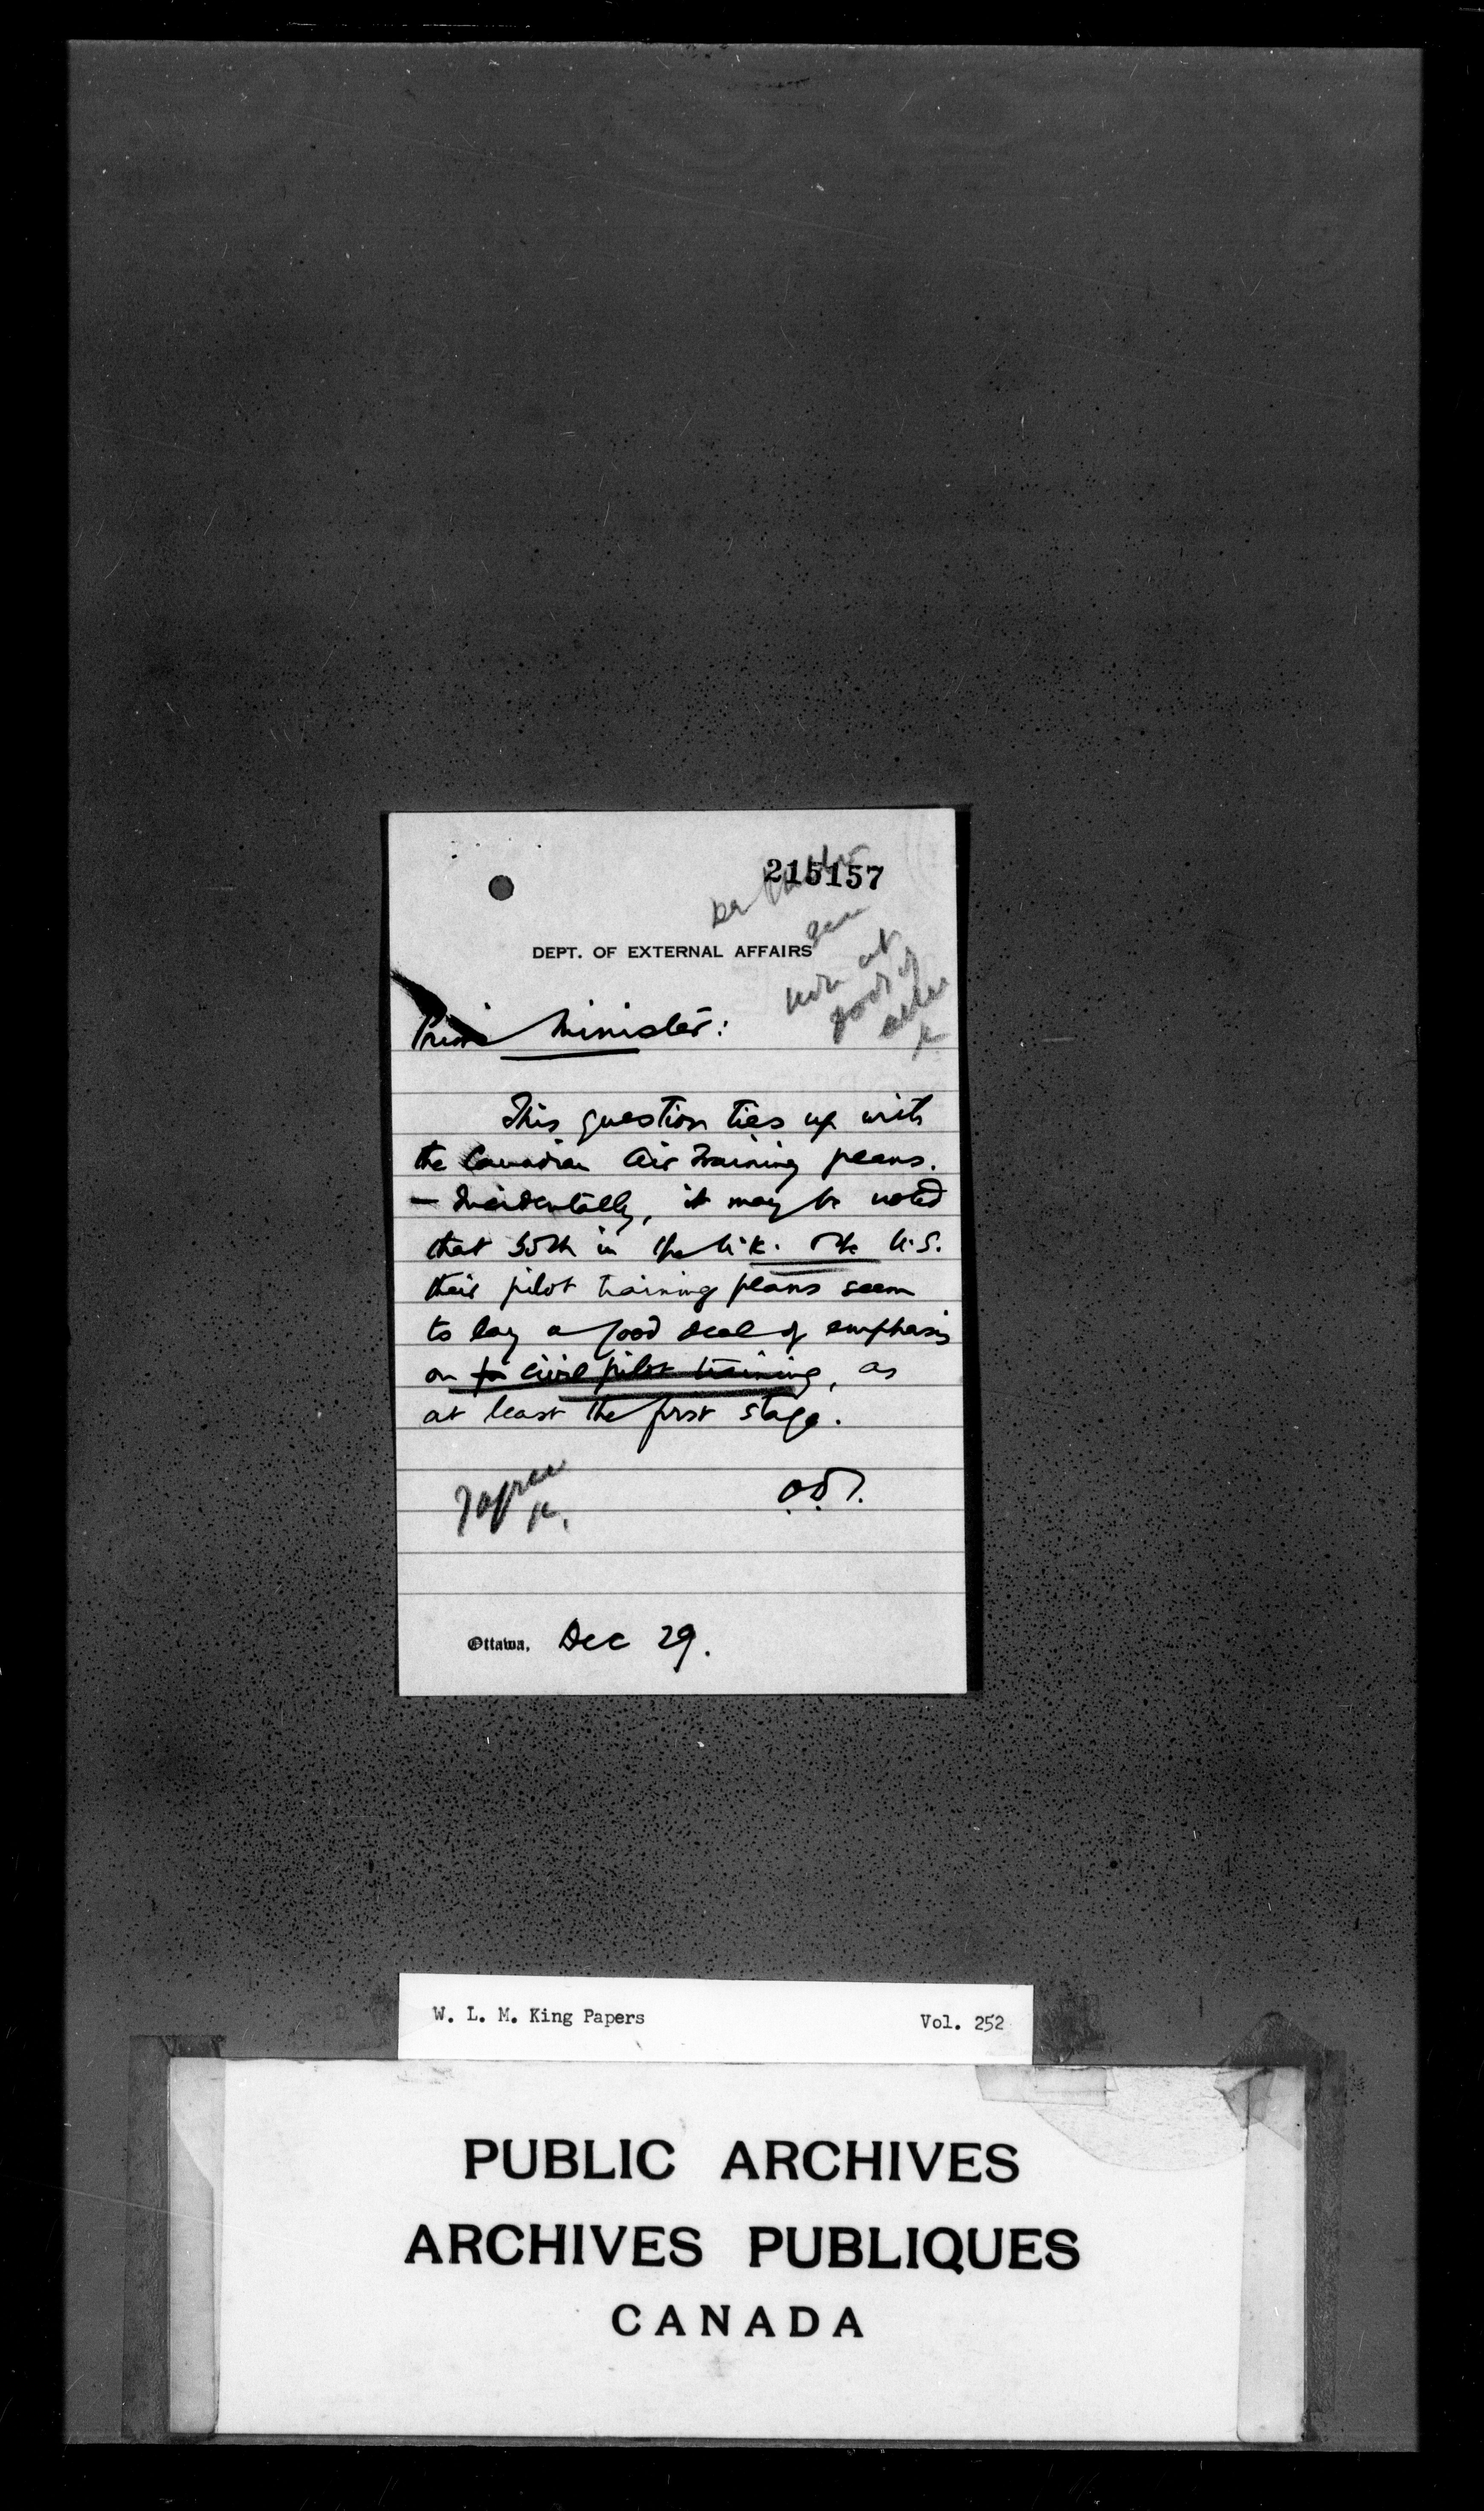 215157
DEPT. OF EXTERNAL AFFAIRS
Prime Minister:
This question ties up with
the Canadian Air Training plans.
— Incidentally, it may be noted
that both in the U.K. & the U.S.
their pilot training plans seem
to lay a good deal of emphasis
on civil pilot training, as
at least the first stage.
I agree
K.
O.D.S.
Ottawa, Dec 29.
W. L. M. King Papers Vol. 252
PUBLIC ARCHIVES
ARCHIVES PUBLIQUES
CANADA